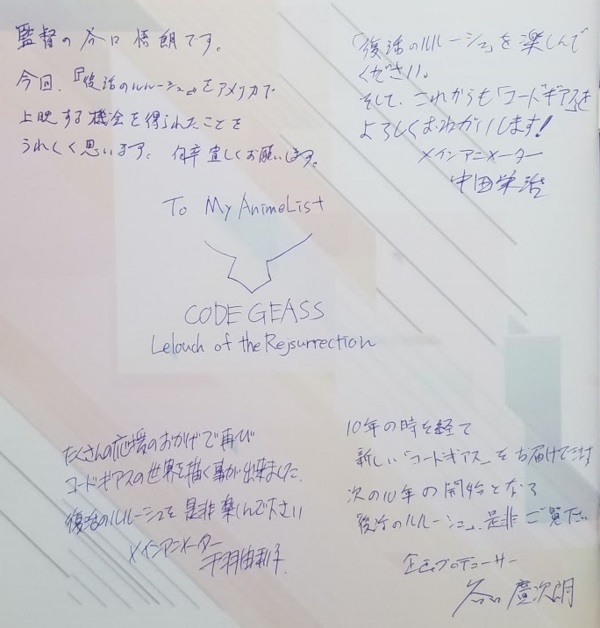 監督の谷口悟朗です。
今回、『復活のルルーシュ』をアメリカで
上映する機会を得られたことを
うれしく思います。何卒宜しくお願いします。
「復活のルルーシュ」を楽しんで
ください。
そして、これからも「コードギアス」を
よろしくおねがいします！
メインアニメーター
中田栄治
To MyAnimeList
CODE GEASS
Lelouch of the Rejsurrection
たくさんの応援のおかげで再び
コードギアスの世界を描く事が出来ました。
復活のルルーシュを是非楽しんで下さい
メインアニメーター
千羽由利子
10年の時を経て
新しい「コードギアス」をお届けできます
次の10年の開始となる
「復活のルルーシュ」、是非ご覧下さい
企画プロデューサー
谷口廣次朗